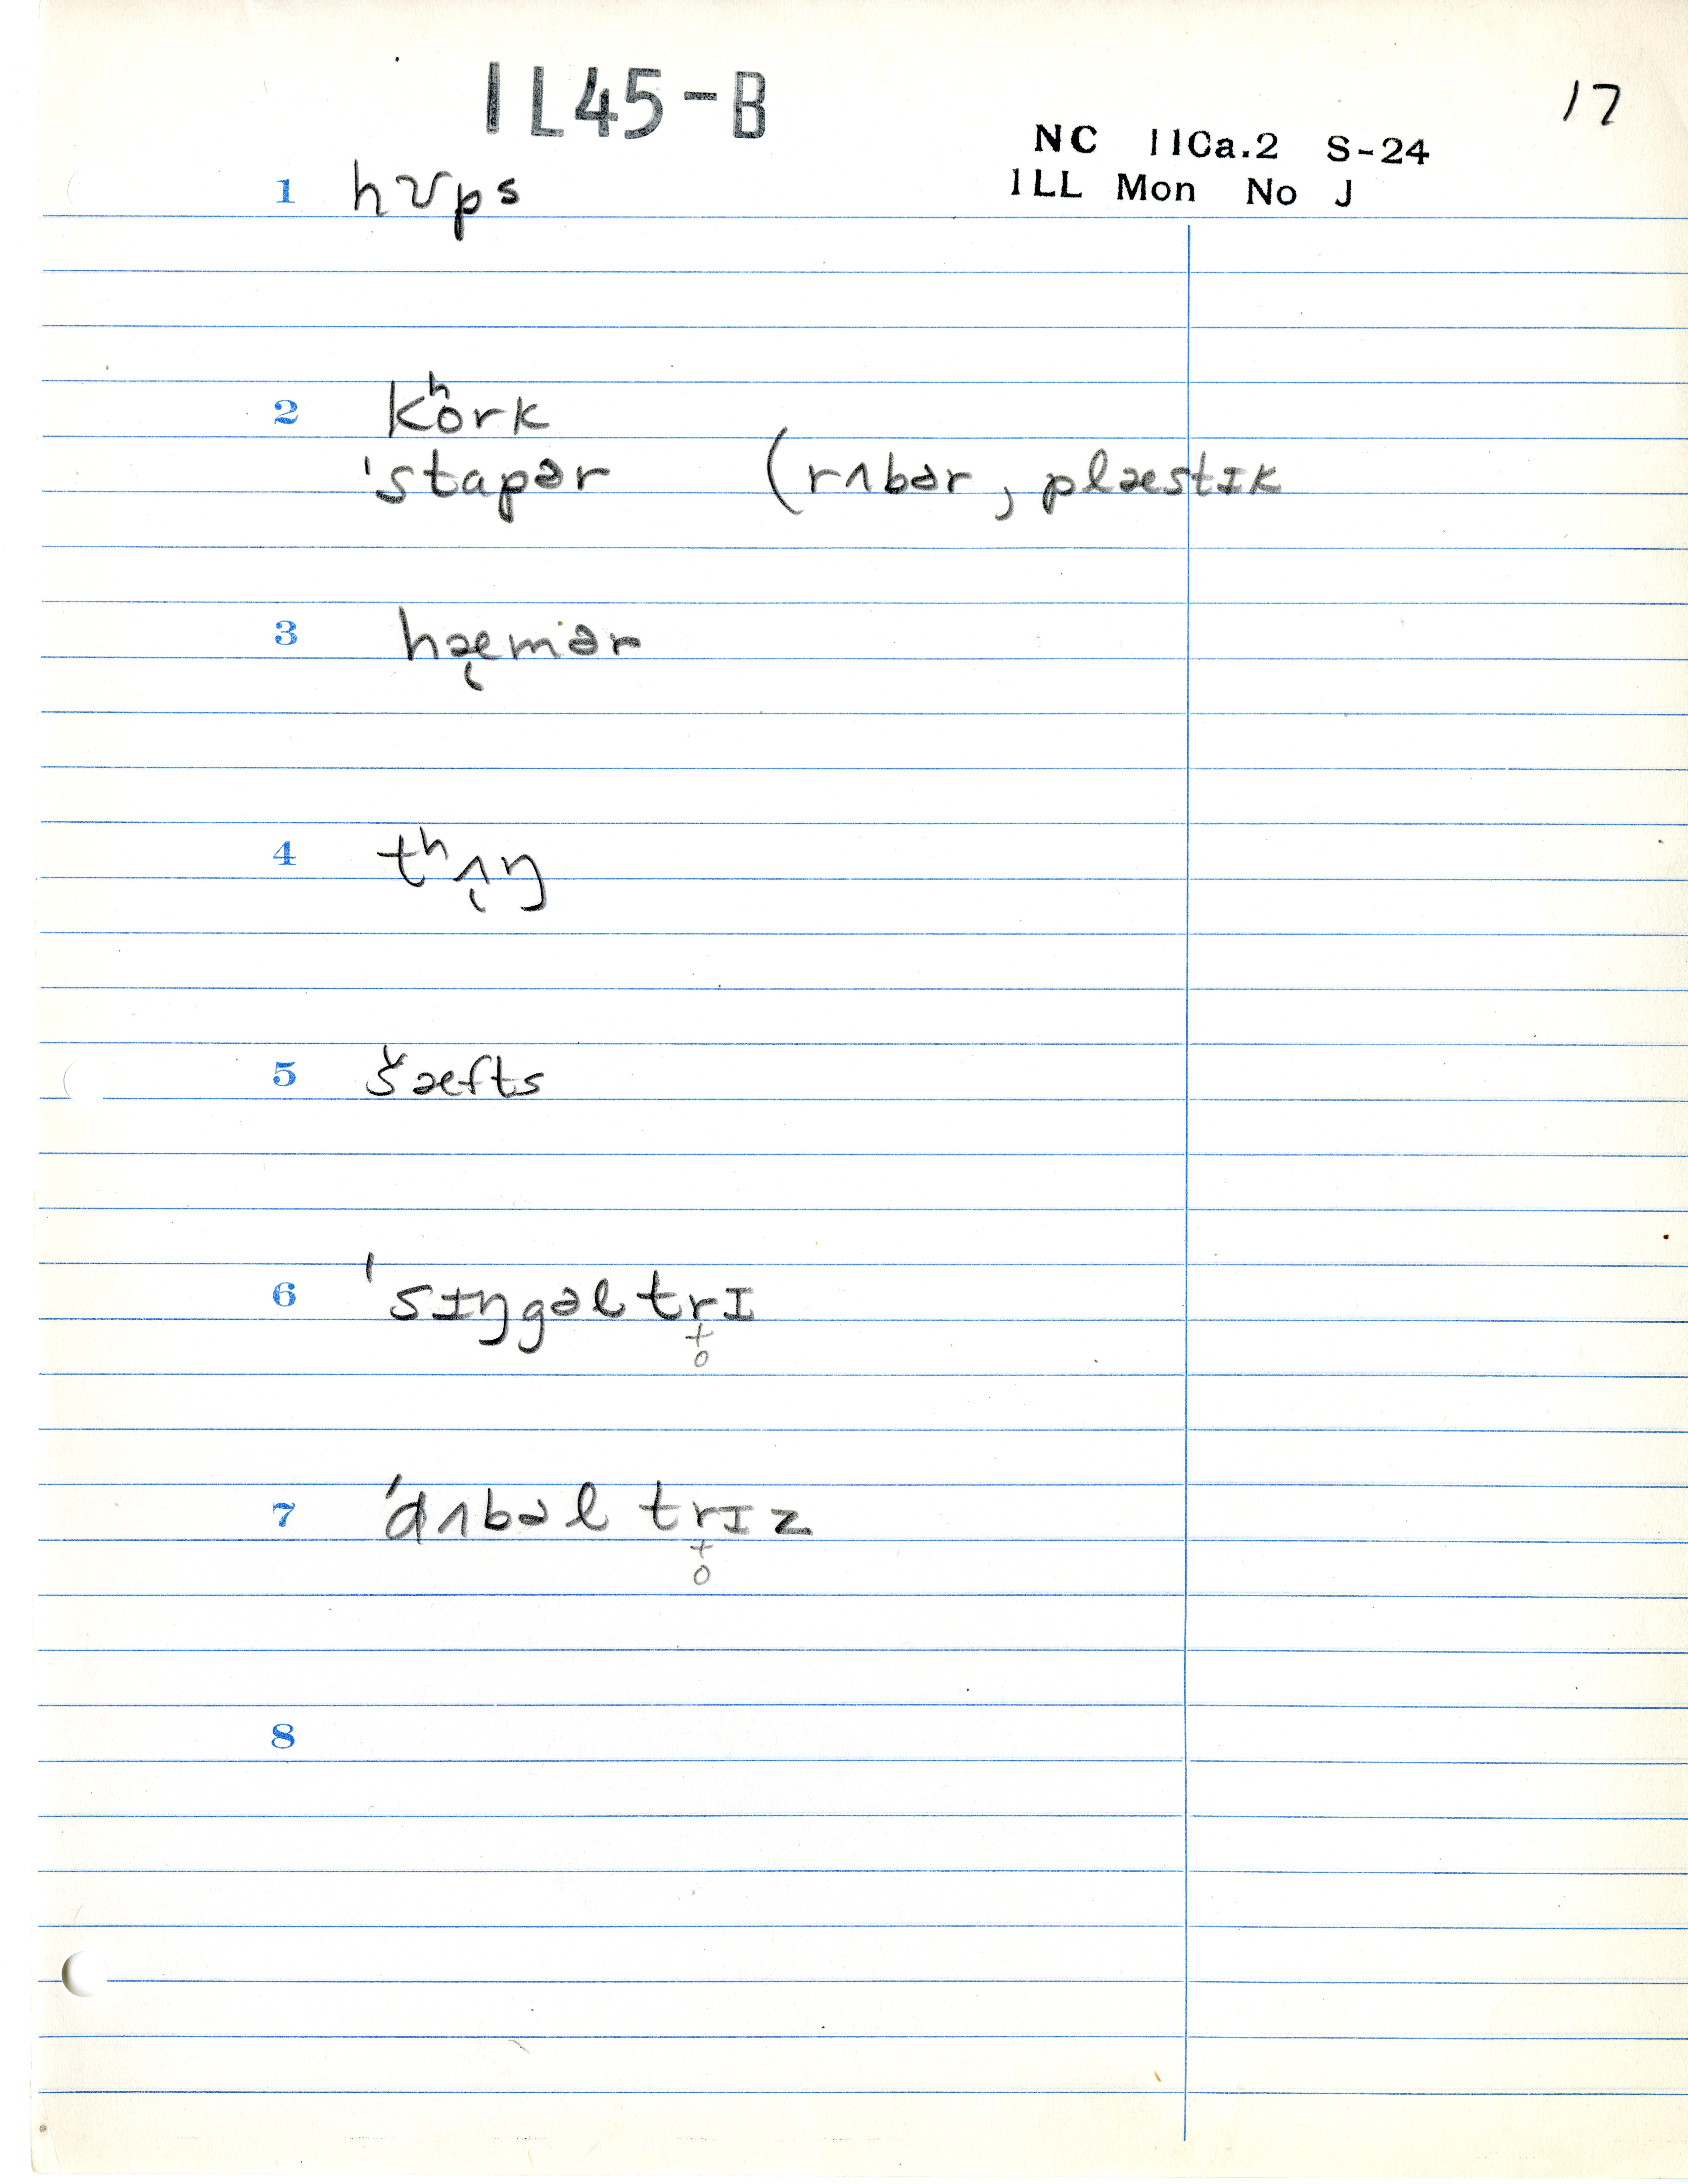 1L45-B
17
NC 11Ca.2 S-24
1LL Mon No J
1 hʊps
2 kʰork
ˈstapər (rʌbər, plæstɪk
3 hæ̨mər
4 tʰʌ̨ŋ
5 šæfts
6 ˈsɪŋgəl trɪ
+
o
7 ˈdʌbəl trɪz
+
o
8